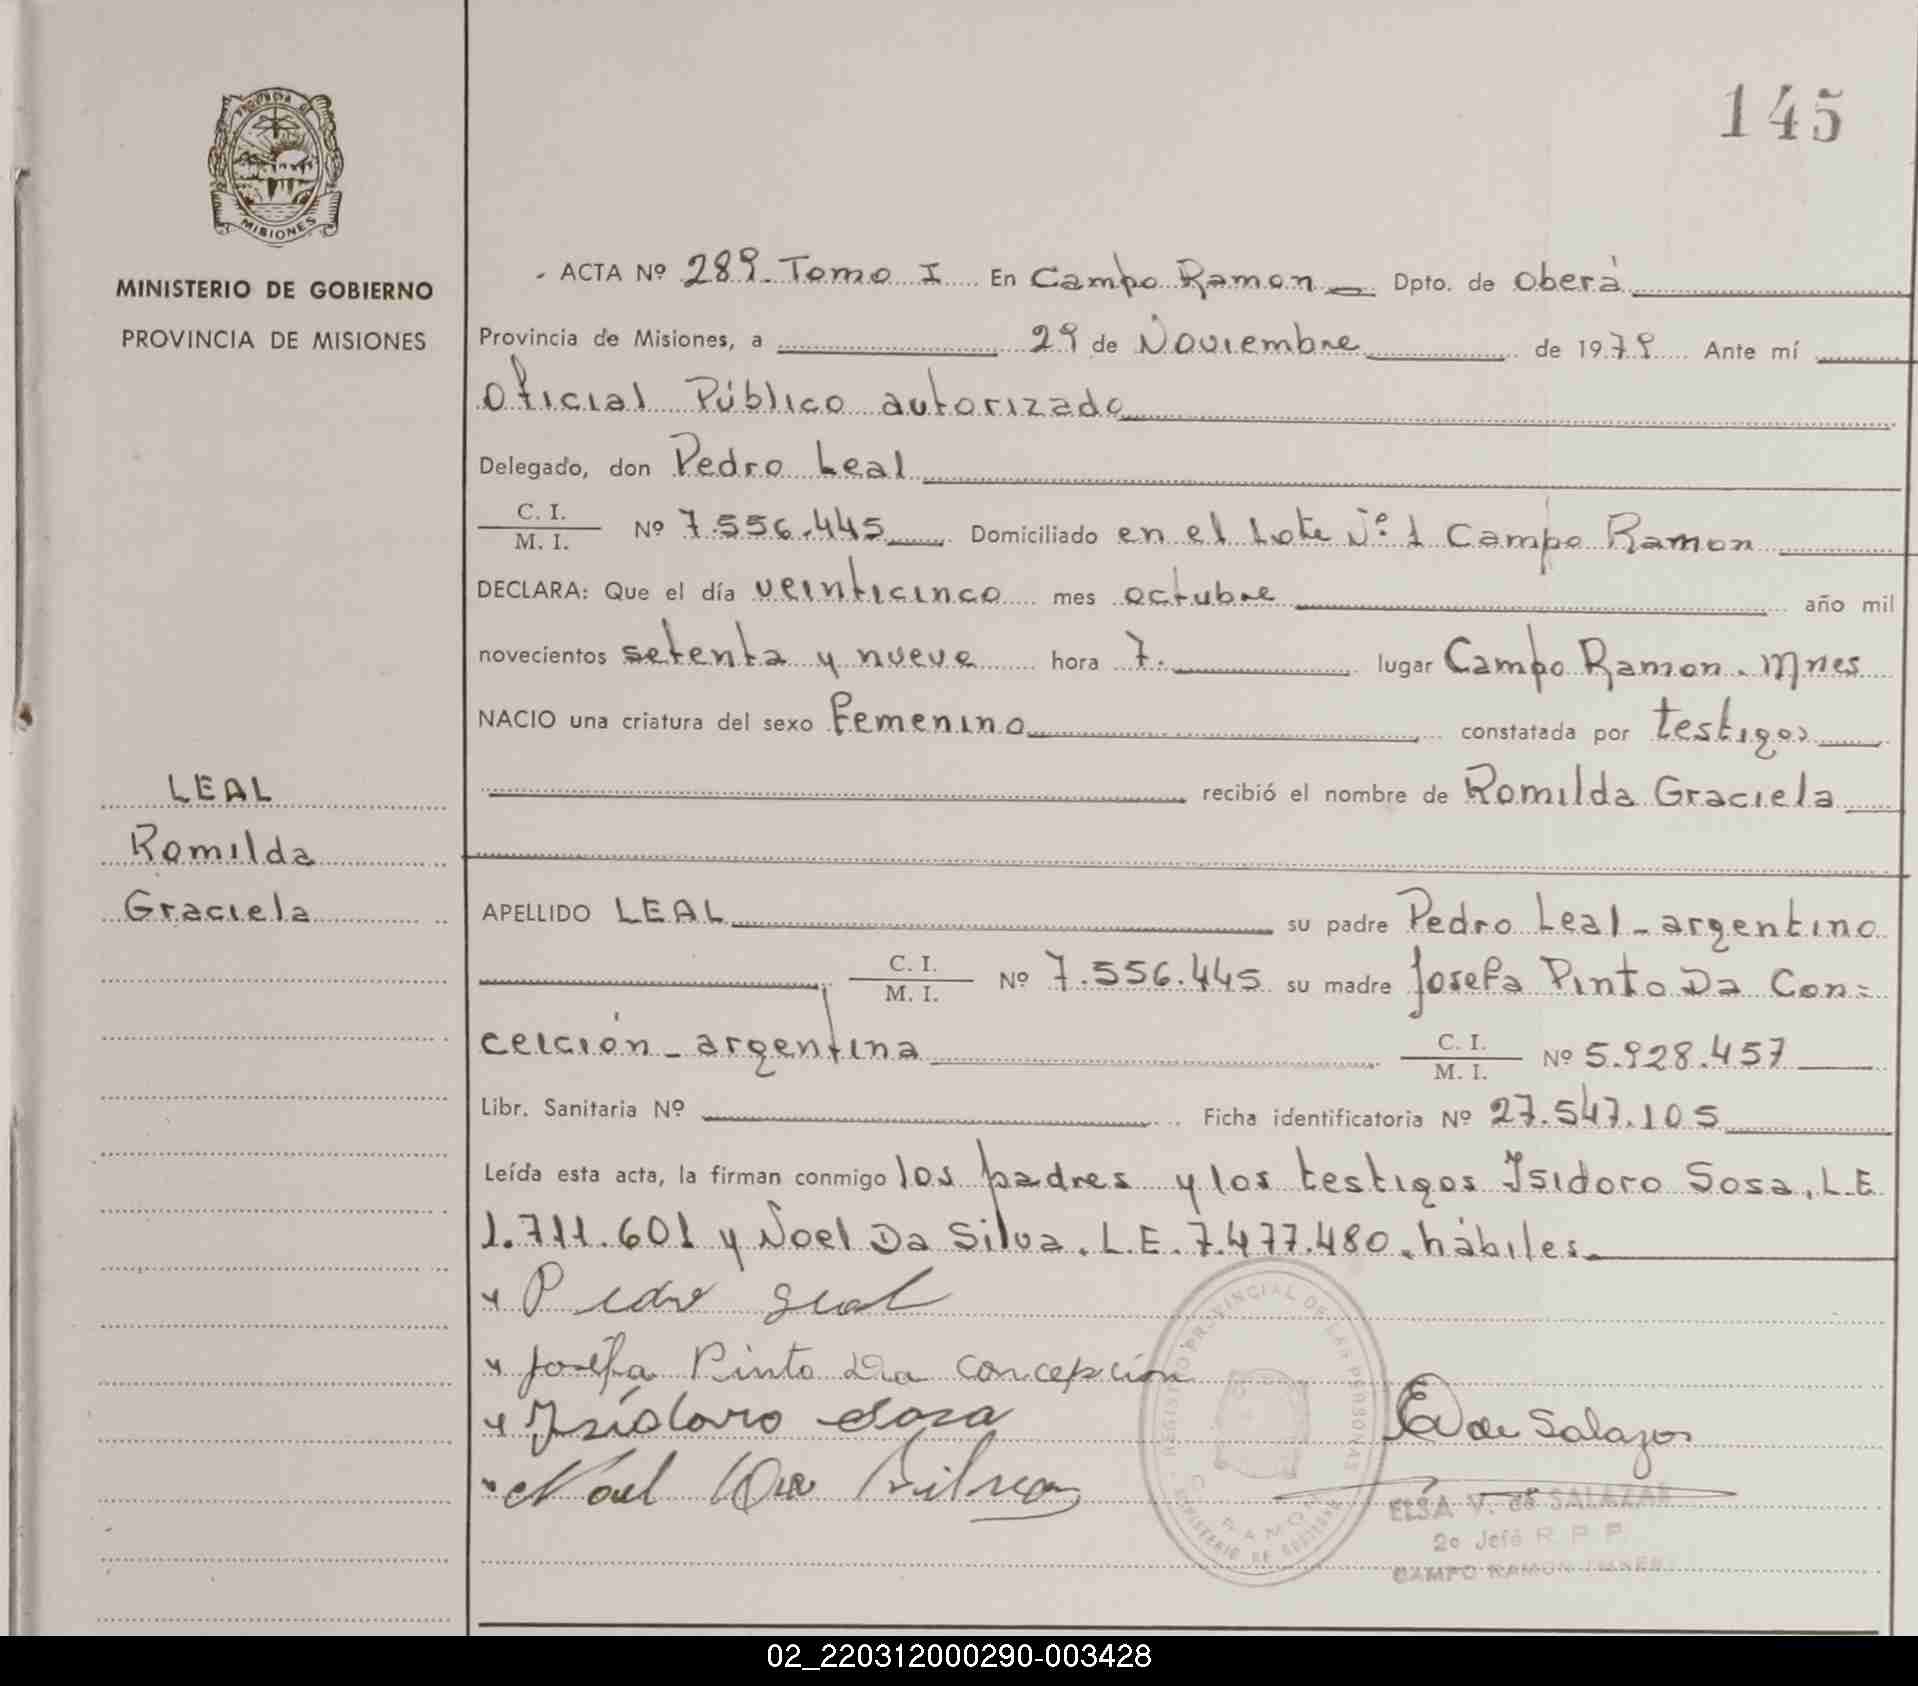 145
PROVINCIA DE
MISIONES
MINISTERIO DE GOBIERNO
PROVINCIA DE MISIONES
LEAL
Romilda
Graciela
ACTA Nº 289. Tomo I En Campo Ramon Dpto. de Oberá
Provincia de Misiones, a 29 de Noviembre de 1979 Ante mí
Oficial Público autorizado
Delegado, don Pedro Leal
C. I.
M. I. Nº 7.556.445 Domiciliado en el Lote Nº 1 Campo Ramon
DECLARA: Que el día veinticinco mes octubre año mil
novecientos setenta y nueve hora 7. lugar Campo Ramon. Mnes
NACIO una criatura del sexo Femenino constatada por testigos
recibió el nombre de Romilda Graciela
APELLIDO LEAL su padre Pedro Leal - argentino
C. I.
M. I. Nº 7.556.445 su madre Josefa Pinto Da Con=
ceición - argentina C. I.
M. I. Nº 5.928.457
Libr. Sanitaria Nº Ficha identificatoria Nº 27.547.105
Leída esta acta, la firman conmigo los padres y los testigos Isidoro Sosa, L.E
1.711.601 y Noel Da Silva. L.E. 7.477.480. hábiles.
Pedro Leal
Josefa Pinto Da Concepción
Isidoro Sosa
Noel Da Silva
REGISTRO PROVINCIAL DE LAS PERSONAS
RAMON
MINISTERIO DE GOBIERNO
EV de Salazar
ELSA V. de SALAZAR
2º Jefe R. P. P.
CAMPO RAMON (MNES)
02_220312000290-003428